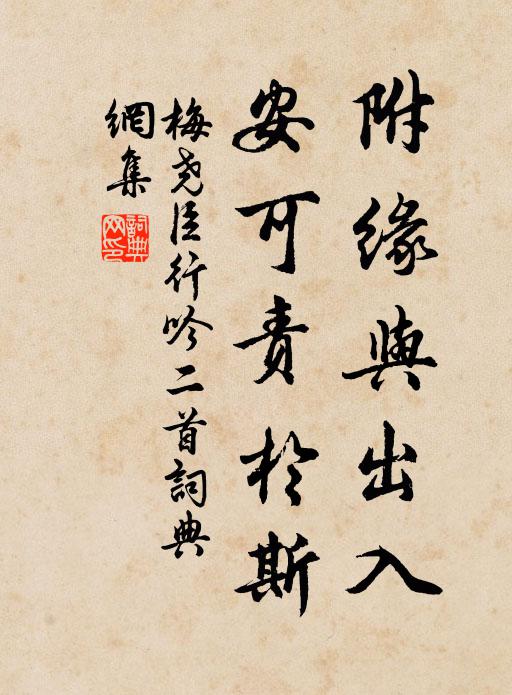 附緣與出入
安可責於斯
梅堯臣行吟二首詞典
網集
詞典
网印